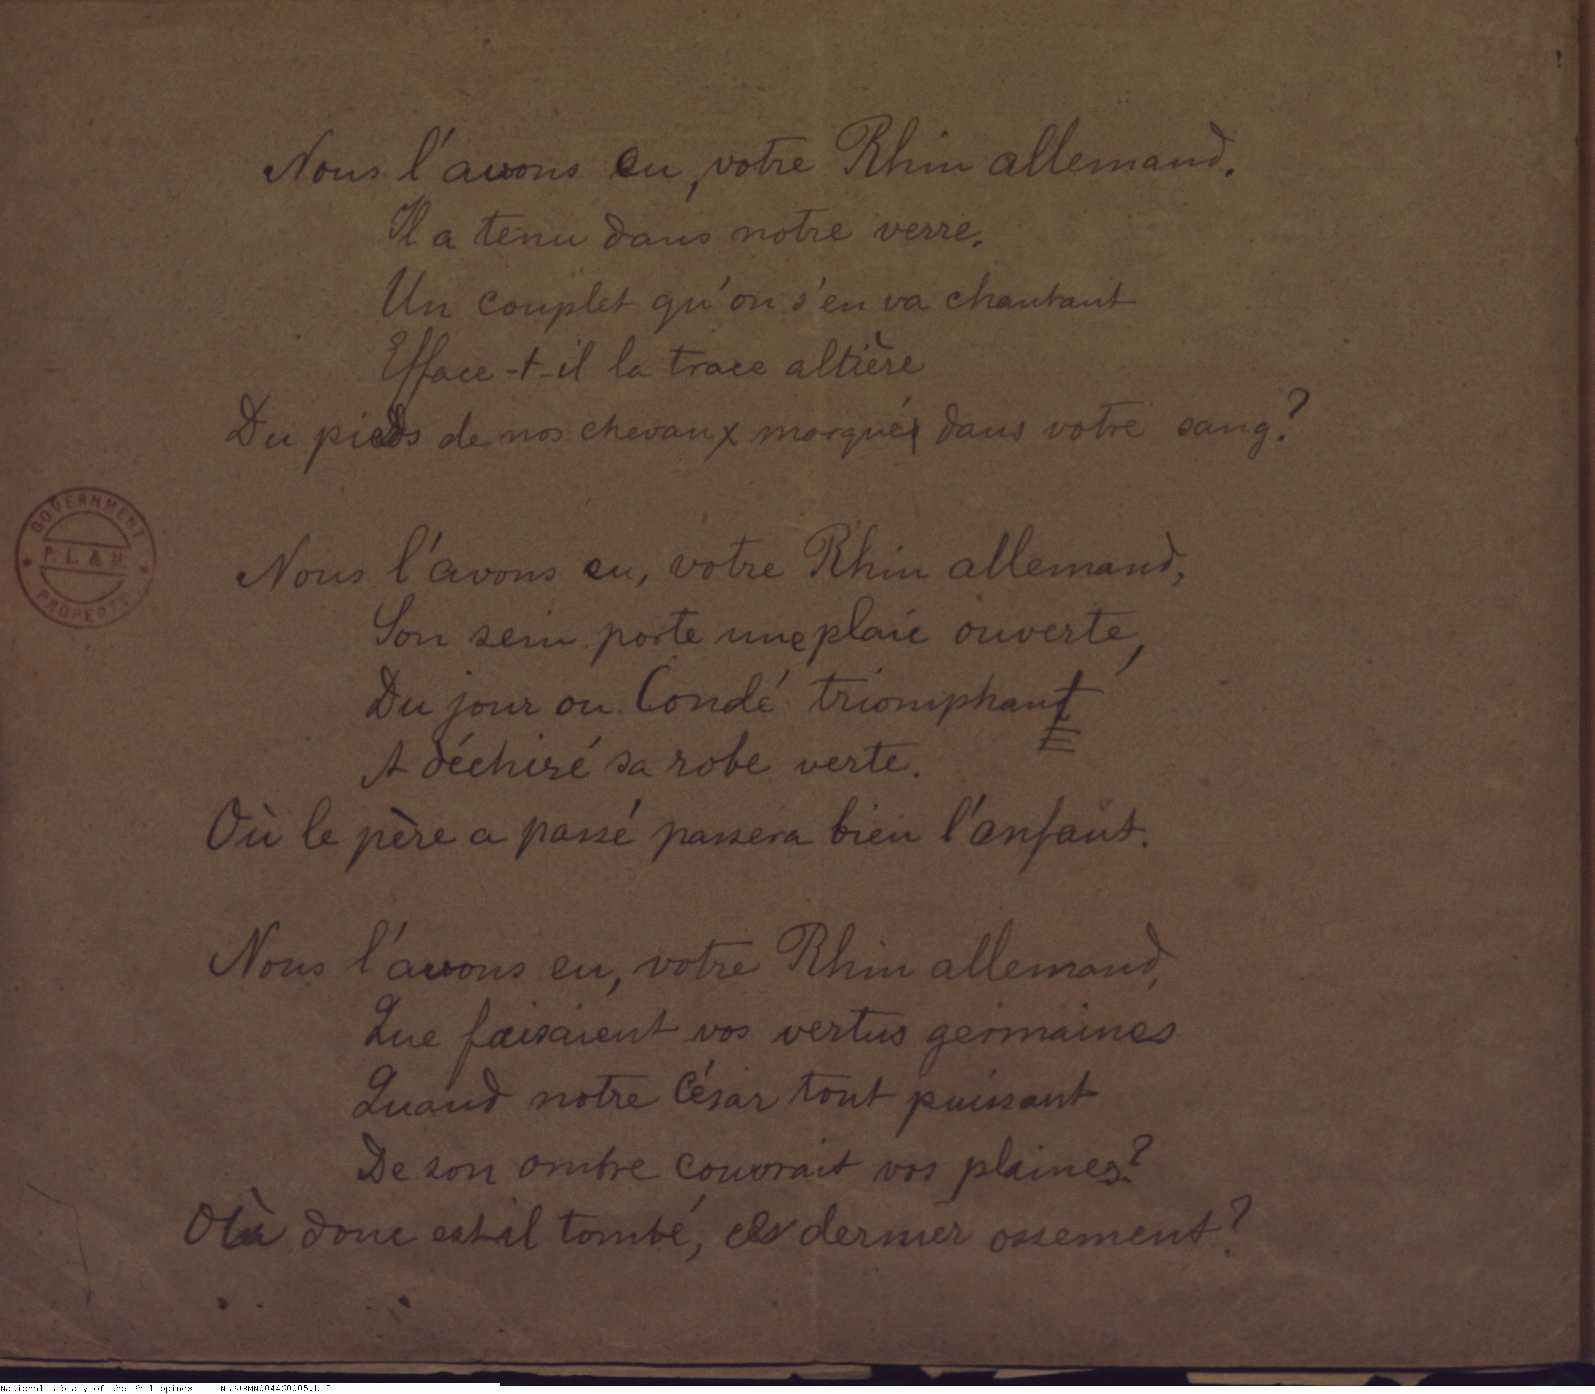 Nous l'avons eu, votre Rhin allemand.
Il a tenu dans notre verre.
Un couplet qu'on s'en va chantant
Efface-t-il la trace altière
Du pieds de nos chevaux marqués dans votre sang?
GOVERNMENT
P. L. & M.
PROPERTY
Nous l'avons eu, votre Rhin allemand,
Son sein porte une plaie ouverte,
Du jour ou Condé triomphant
A déchiré sa robe verte.
Où le père a passé passera bien l'enfant.
Nous l'avons eu, votre Rhin allemand,
Que faisaient vos vertus germaines
Quand notre César tout puissant
De son ombre couvrait vos plaines?
Où donc est-il tombé, dernier ossement?
National Library of the Philippines